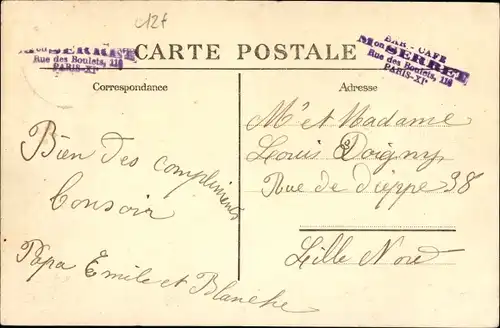 c12f
CARTE POSTALE
Mon SERRET
Rue des Boulets, 110
PARIS-XIe
BAR - CAFE
Mon SERRET
Rue des Boulets, 110
PARIS-XIe
Correspondance
Bien des compliments
Bonsoir
Papa Emile et Blanche
Adresse
Mr et Madame
Louis Doigny
Rue de Dieppe 38
Lille Nord